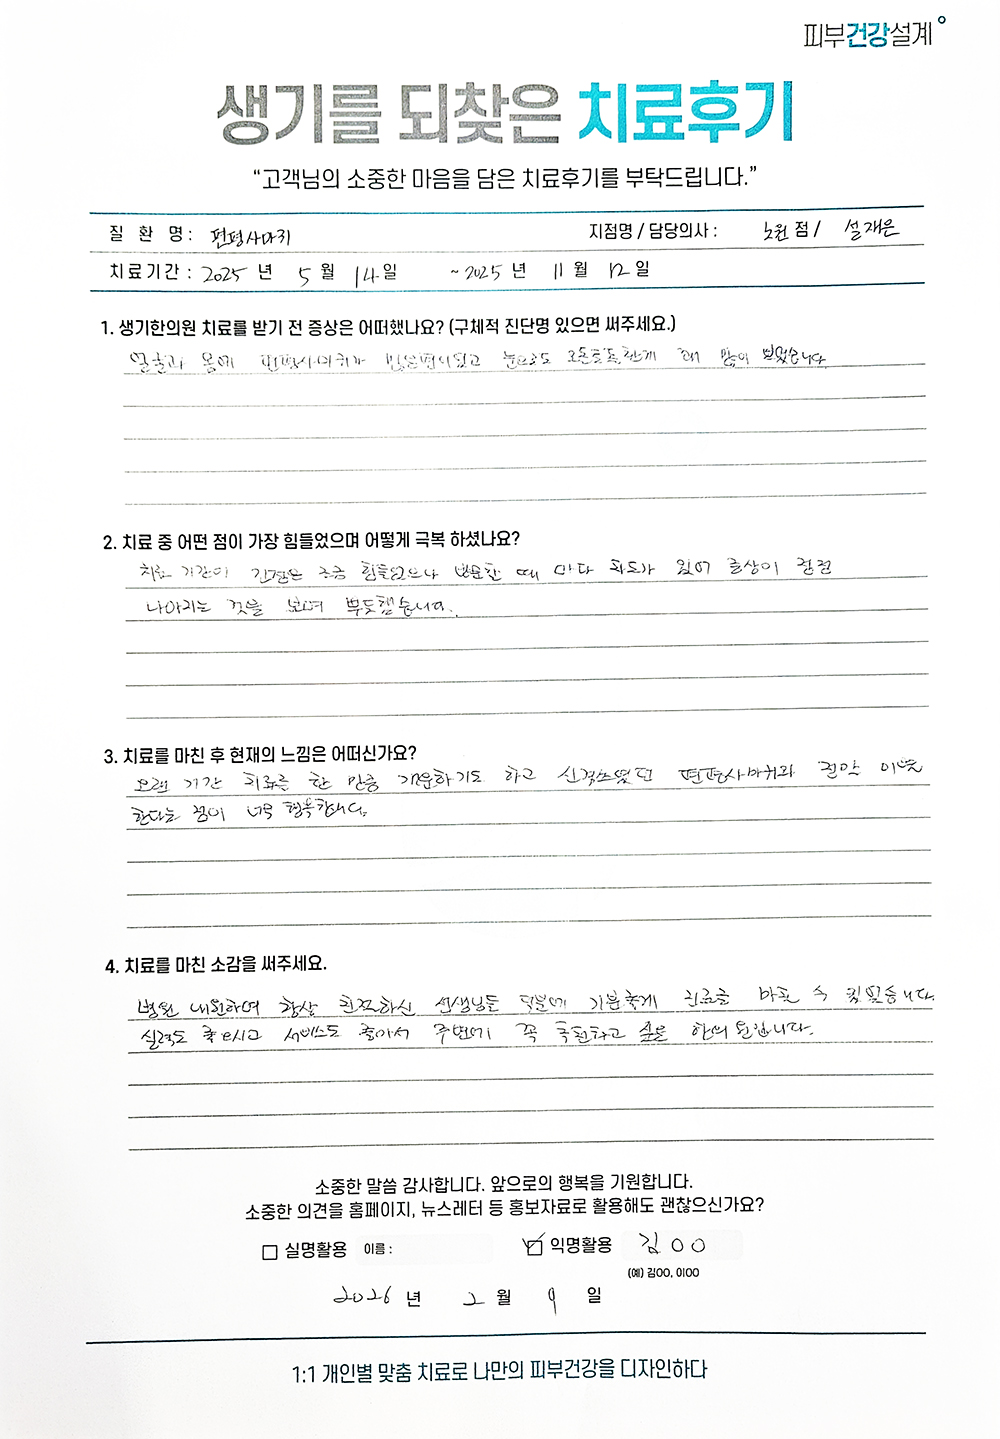 피부건강설계
생기를 되찾은 치료후기
“고객님의 소중한 마음을 담은 치료후기를 부탁드립니다.”
질 환 명 : 편평사마귀 지점명 / 담당의사 : 노원 점 / 설재은
치료기간 : 2025 년 5 월 14 일 ~ 2025 년 11 월 12 일
1. 생기한의원 치료를 받기 전 증상은 어떠했나요? (구체적 진단명 있으면 써주세요.)
얼굴과 몸에 편평사마귀가 눈으로도 오돌토돌한게 꽤 많이 보였습니다
2. 치료 중 어떤 점이 가장 힘들었으며 어떻게 극복 하셨나요?
치료 기간이 긴점은 조금 힘들었으나 방문할 때 마다 효과가 있어 증상이 점점
나아지는 것을 보며 뿌듯했습니다.
3. 치료를 마친 후 현재의 느낌은 어떠신가요?
오랜 기간 치료를 한 만큼 개운하기도 하고 신경쓰였던 편평사마귀와 절약 이별
한다는 점이 너무 행복합니다.
4. 치료를 마친 소감을 써주세요.
병원 내원하며 항상 친절하신 선생님들 덕분에 기분좋게 진료를 마칠 수 있었습니다.
실력도 좋으시고 서비스도 좋아서 주변에 꼭 추천하고 싶은 한의원입니다.
소중한 말씀 감사합니다. 앞으로의 행복을 기원합니다.
소중한 의견을 홈페이지, 뉴스레터 등 홍보자료로 활용해도 괜찮으신가요?
실명활용 이름 : 익명활용 김OO
(예) 김OO, 이OO
2026 년 2 월 9 일
1:1 개인별 맞춤 치료로 나만의 피부건강을 디자인하다